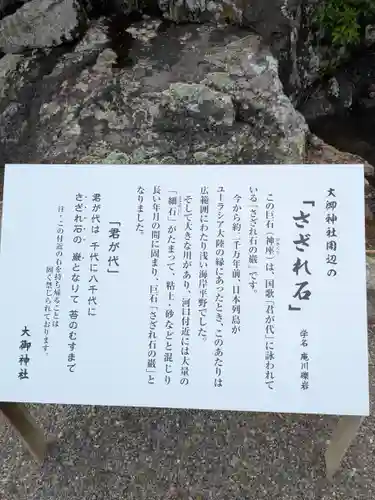 大御神社周辺の
「さざれ石」
学名 庵川礫岩
この巨石(神座)は、国歌「君が代」に詠われて
いる「さざれ石の巌」です。
今から約二千万年前、日本列島が
ユーラシア大陸の縁にあったとき、このあたりは
広範囲にわたり浅い海岸平野でした。
そして大きな川があり、河口付近には大量の
「細石」がたまって、粘土・砂などと混じり
長い年月の間に固まり、巨石「さざれ石の巌」と
なりました。
「君が代」
君が代は 千代に八千代に
さざれ石の 巌となりて 苔のむすまで
注：この付近の石を持ち帰ることは
固く禁じられております。
大御神社